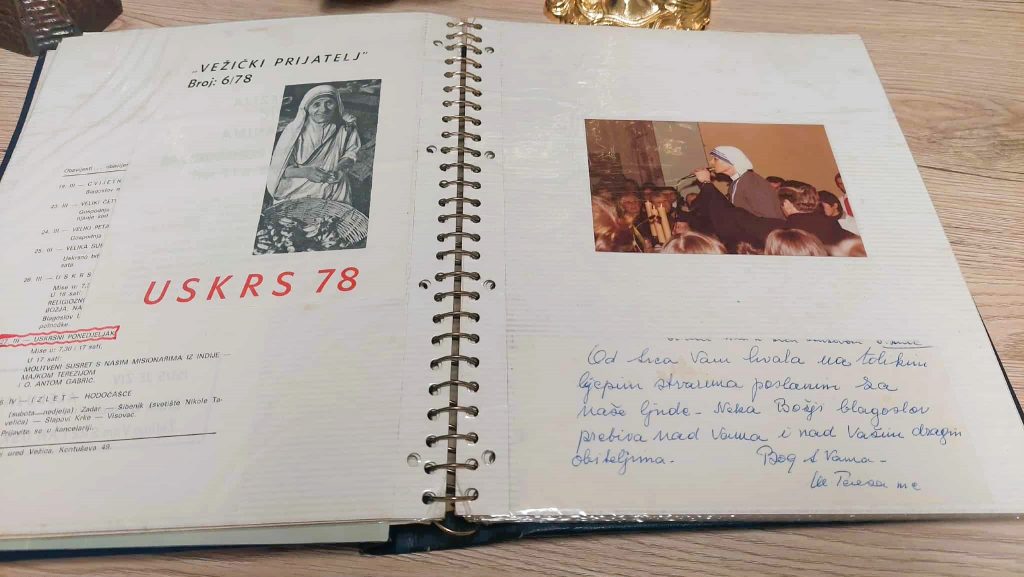 „VEŽIČKI PRIJATELJ"
Broj: 6/78
USKRS 78
Obavijesti - obavijes
19. III — CVIJETN
Blagoslov
23. III — VELIKI ČET
Gospodnja
24. III — VELIKI PETA
Gospodnja
25. III — VELIKA SUB
26. III — USKRS
Mise u 7,
U 18 sati:
RELIGIOZNI
BOŽJA NA
Blagoslov
ponoćke.
27. III — USKRSNI PONEDJELJAK
Mise u: 7,30 i 17 sati,
U 17 sati:
MOLITVENI SUSRET S NAŠIM MISIONARIMA IZ INDIJE —
MAJKOM TEREZIJOM
I O. ANTOM GABRIĆ.
6. IV — IZLET — HODOČAŠĆE
(subota—nedjelja) Zadar — Šibenik (svetište Nikole Ta-
velića) — Slapovi Krke — Visovac.
Prijavite se u kancelariji.
ured Vežica, Kontuševa 49.
Od srca Vam hvala na tolikim
lijepim stvarima poslanim za
naše ljude. Neka Božji blagoslov
prebiva nad Vama i nad Vašim dragim
obiteljima. Bog s Vama.
M Teresa mc